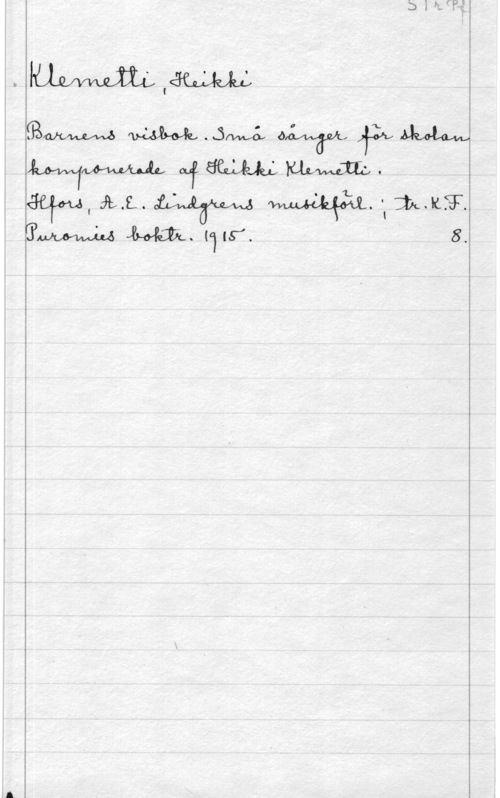 Klemetti, Heikki
Barnens visbok. Små sånger för skolan
komponerade af Heikki Klemetti.
Hfors, A.E. Lindgrens musikförl.; tr. K.F.
Puromies boktr. 1915. 8.